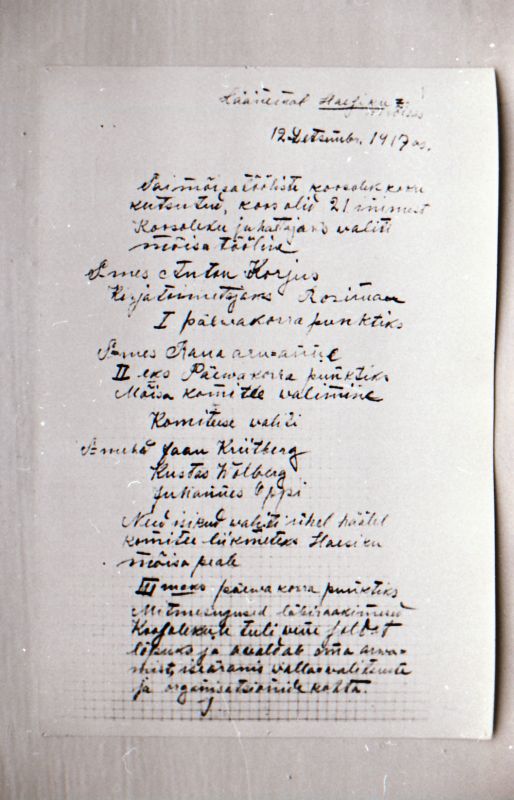 Läänemaal Haesiku
mõisas
12 Detsembr. 1917 as.
Sai mõisa tööliste koosolek kokku
kutsutud, koos olid 21 inimest
Koosoleku juhatajaks valiti
mõisa tööline
S-mes Anton Korjus
Kirjatoimetajaks Rosiman
I päewakorra punktiks
S-mes Rana aru-anne
II eks Päewakorra punktiks
Mõisa komitee walimine
Komiteese valiti
S-mehd Jaan Kriitberg
Kustas Wolberg
Juhannes Öppi
Need isikud waliti ühel häälel
komitee liikmeteks Haesiku
mõisa peale
III maks päewakorra punktiks
Mitmesugused läbirääkimised
Koosolekule tuli vene soldat
lõpuks ja awaldab oma arwa-
misi, iseäranis valla-walitsuste
ja organisatsionide kohta.